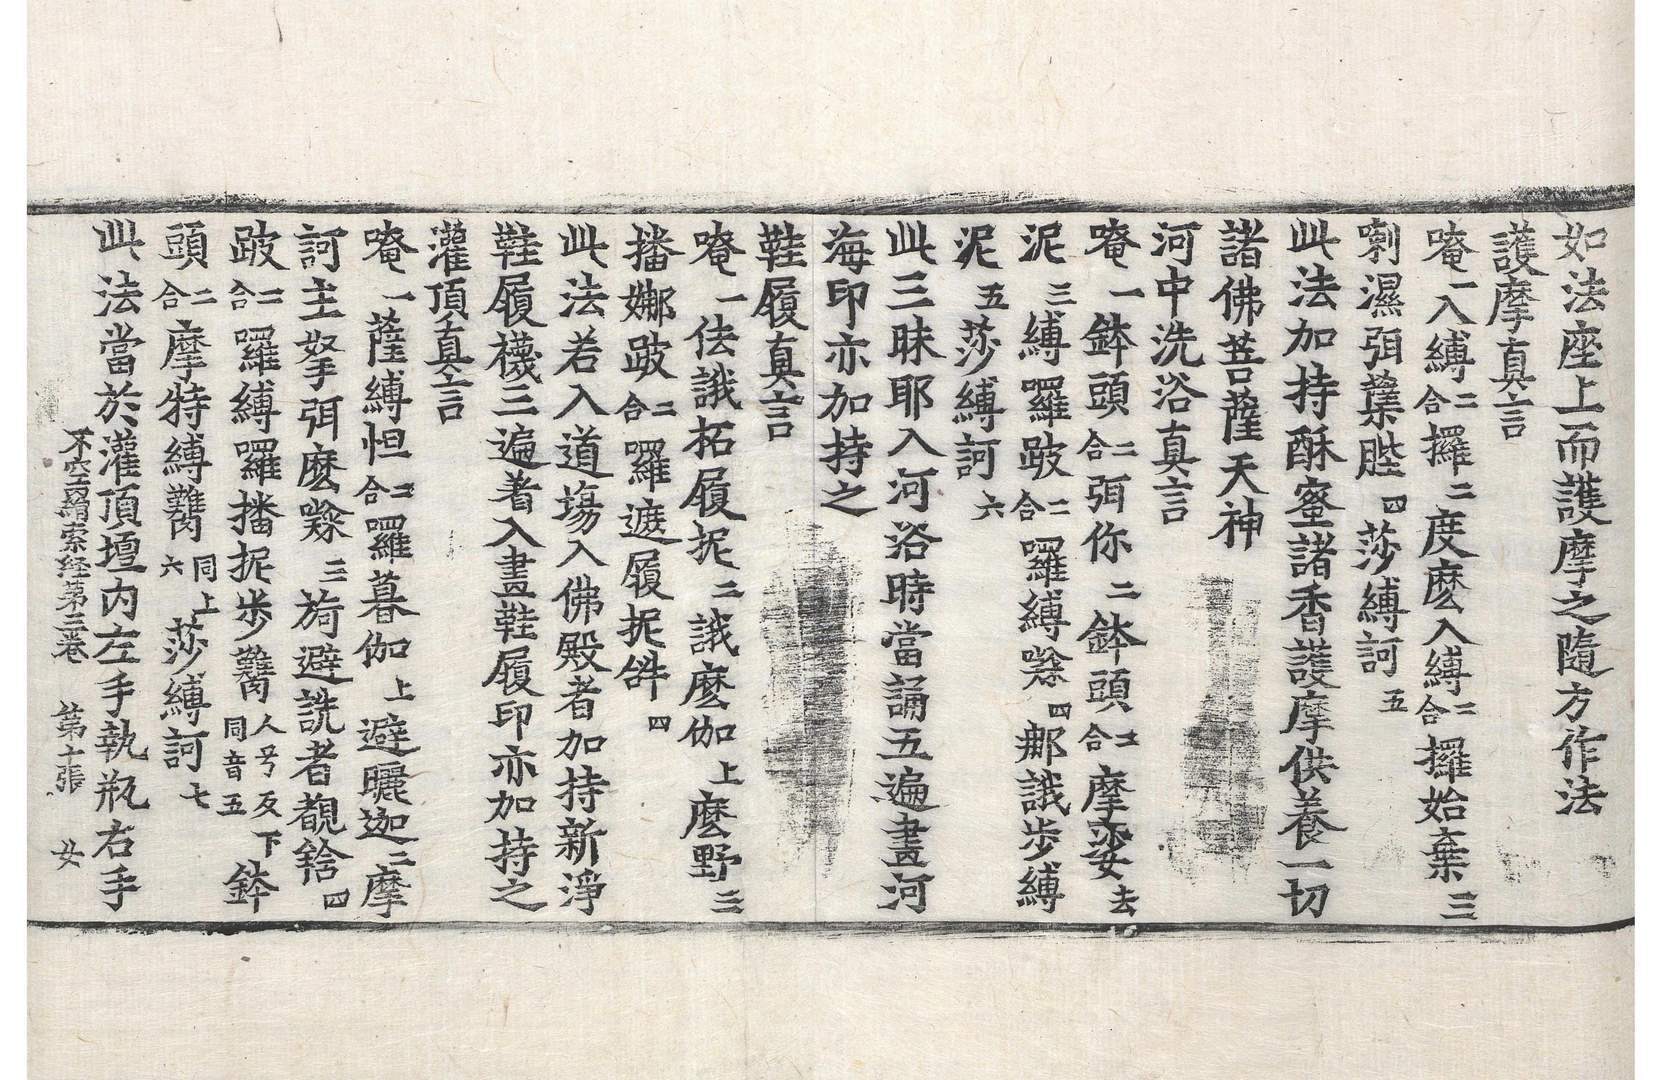 如法座上而護摩之隨方作法
護摩真言
唵一入縛二合攞二度麼入縛二合攞始棄三
喇濕弭藥陛四莎縛訶五
此法加持酥蜜諸香護摩供養一切
諸佛菩薩天神
河中洗浴真言
唵一鉢頭二合弭你二鉢頭二合摩娑去
泥三縛囉跛二合囉縛縒四郝誐步縛
泥五莎縛訶六
此三昧耶入河浴時當誦五遍畫河
海印亦加持之
鞋履真言
唵一佉誐柘履抳二誐麼伽上麼野三
播娜跛二合囉遮履抳𤙖四
此法若入道場入佛殿者加持新淨
鞋履襪三遍著入畫鞋履印亦加持之
灌頂真言
唵一薩縛怛二合囉暮伽上避曬迦二摩
訶主拏弭麼縒三旖避詵者覩鋡四
跛二合囉縛囉播抳步𩕳人兮反下同音五鉢
頭二合摩特縛𩕳同上六莎縛訶七
此法當於灌頂壇內左手執瓶右手
不空羂索経第三卷 第十張 女